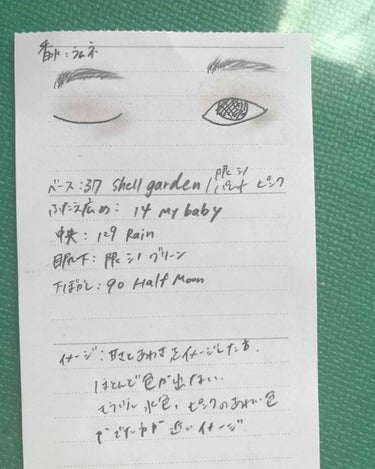 香水:ラムネ
ベース:37 Shell garden / 限定 パレット ピンク
ふたえ広め: 14 My baby
中央: 129 Rain
目尻下: 限定 グリーン
下ぼかし: 90 Half Moon
イメージ:甘さとあわさをイメージした方.
ほとんど色が出ない.
水色, ピンクのあわい色
近いイメージ